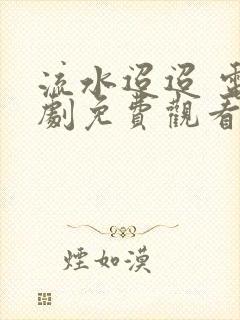 流水迢迢 電
劇免費觀看
煙如漠